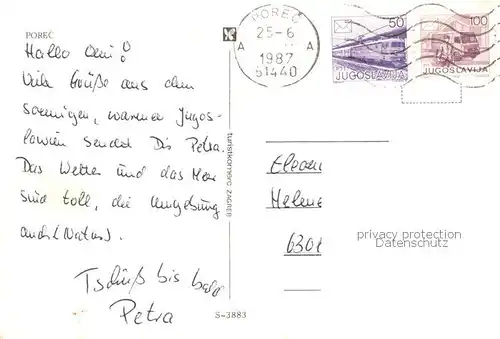 POREČ
Hallo Omi!
Viele Grüße aus dem
sonnigen, warmen Jugos-
lawien sendet Dir Petra.
Das Wetter und das Meer
sind toll, die Umgebung
auch (Natur).
Tschüß bis bald
Petra
turistkomerc ZAGREB
S-3883
POREČ
25-6
A A
1987
51440
50
JUGOSLAVIJA
100
JUGOSLAVIJA
Helene
privacy protection
Datenschutz